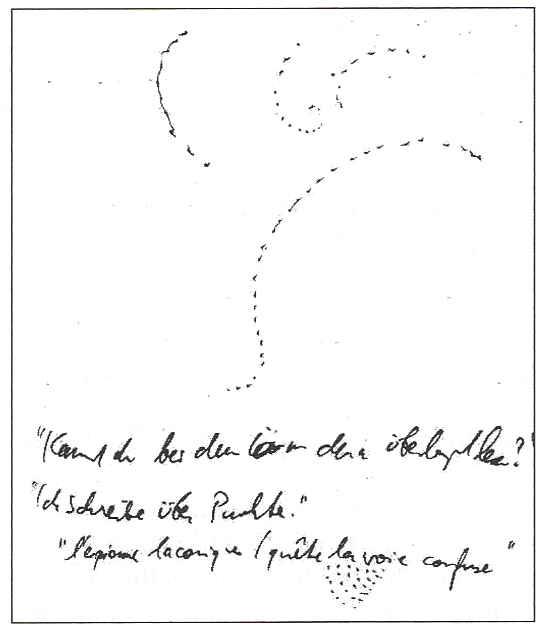 "Kannst du bei dem Lärm denn überhaupt lesen?"
"Ich schreibe über Punkte."
"l'épique laconique / quête la voie confuse"